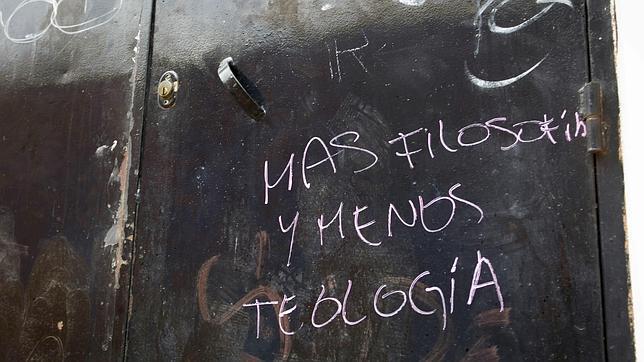 IR
MAS FILOSOFíA
Y MENOS
TEOLOGíA